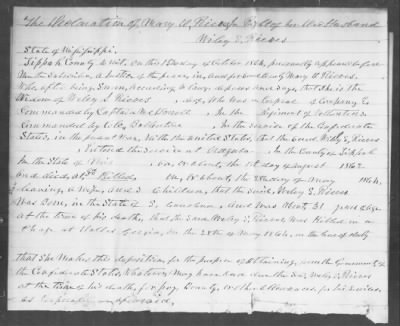 The Declaration of Mary A. Reeves In Right of her Husband
Wiley S. Reeves
State of Mississippi
Tippah County to wit, on this 15 day of October 1864, personally appeared before
the Subscriber, a Justice of the peace, in and for said County Mary A Reeves.
Who after being Sworn, according to law, deposes and Says, that She is the
Widow of Wiley S Reeves, dec, who was a Corporal of Company E
Commanded by Captain McDowell. In the Regiment of Volunteers
Commanded by Col. In the Service of the Confederate
States, in the present War, with the United States, that the Said Wiley S, Reeves
entered the Service at In the County of Tippah
In the State of Miss. on, or about, the 1st day of August 1862
and died at, Killed on, or about, the 28th day of May 1864,
leaving a Wife, and 5 Children, that the Said, Wiley S, Reeves
Was Born, in the State of S, Carolina, and Was about 31 years of age
at the time of his death, that the Said Wiley S, Reeves, Was Killed in a
Charge at Dallas Georgia, on the 28th of May 1864, in the line of duty
that She makes this deposition for the purpose of Obtaining, from the Government of
the Confederate States, Whatever may have been due the Said Wiley S, Reeves
at the time of his death, for pay, Bounty, or other allowances, for his Services
as Corporal, as aforesaid,